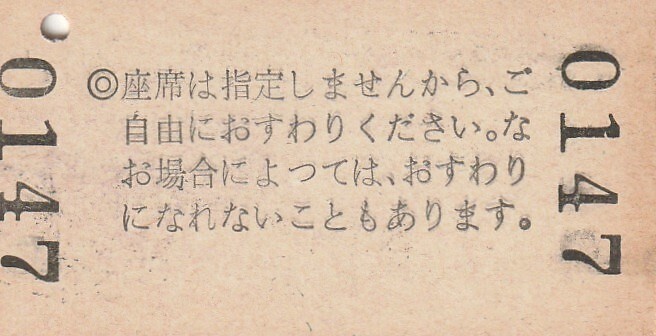 0147
◎座席は指定しませんから、ご
自由におすわりください。な
お場合によつては、おすわり
になれないこともあります。
0147